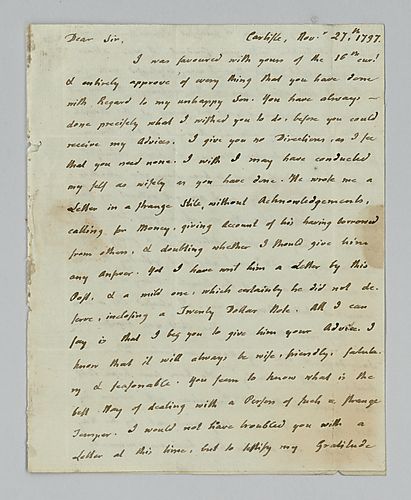 Dear Sir,                    Carlisle, Nov.r 27.th 1797.
I was favoured with yours of the 16th cur.t
& entirely approve of every thing that you have done
with Regard to my unhappy Son. You have always –
done precisely what I wished you to do, before you could
receive my Advices. I give you no Directions, as I see
that you need none. I wish I may have conducted
my self as wisely as you have done. He wrote me a
Letter in a strange Stile, without Acknowledgements,
calling for Money, giving Account of his having borrowed
from others, & doubting whether I should give him
any Answer. Yet I have writ him a Letter by this
Post, & a mild one, which certainly he did not de-
serve, inclosing a Twenty Dollar Note. All I can
say is that I beg you to give him your Advice. I
know that it will always be wise, friendly, saluta-
ry & seasonable. You seem to know what is the
best Way of dealing with a Person of such a strange
Temper. I would not have troubled you with a
Letter at this time, but to testify my Gratitude